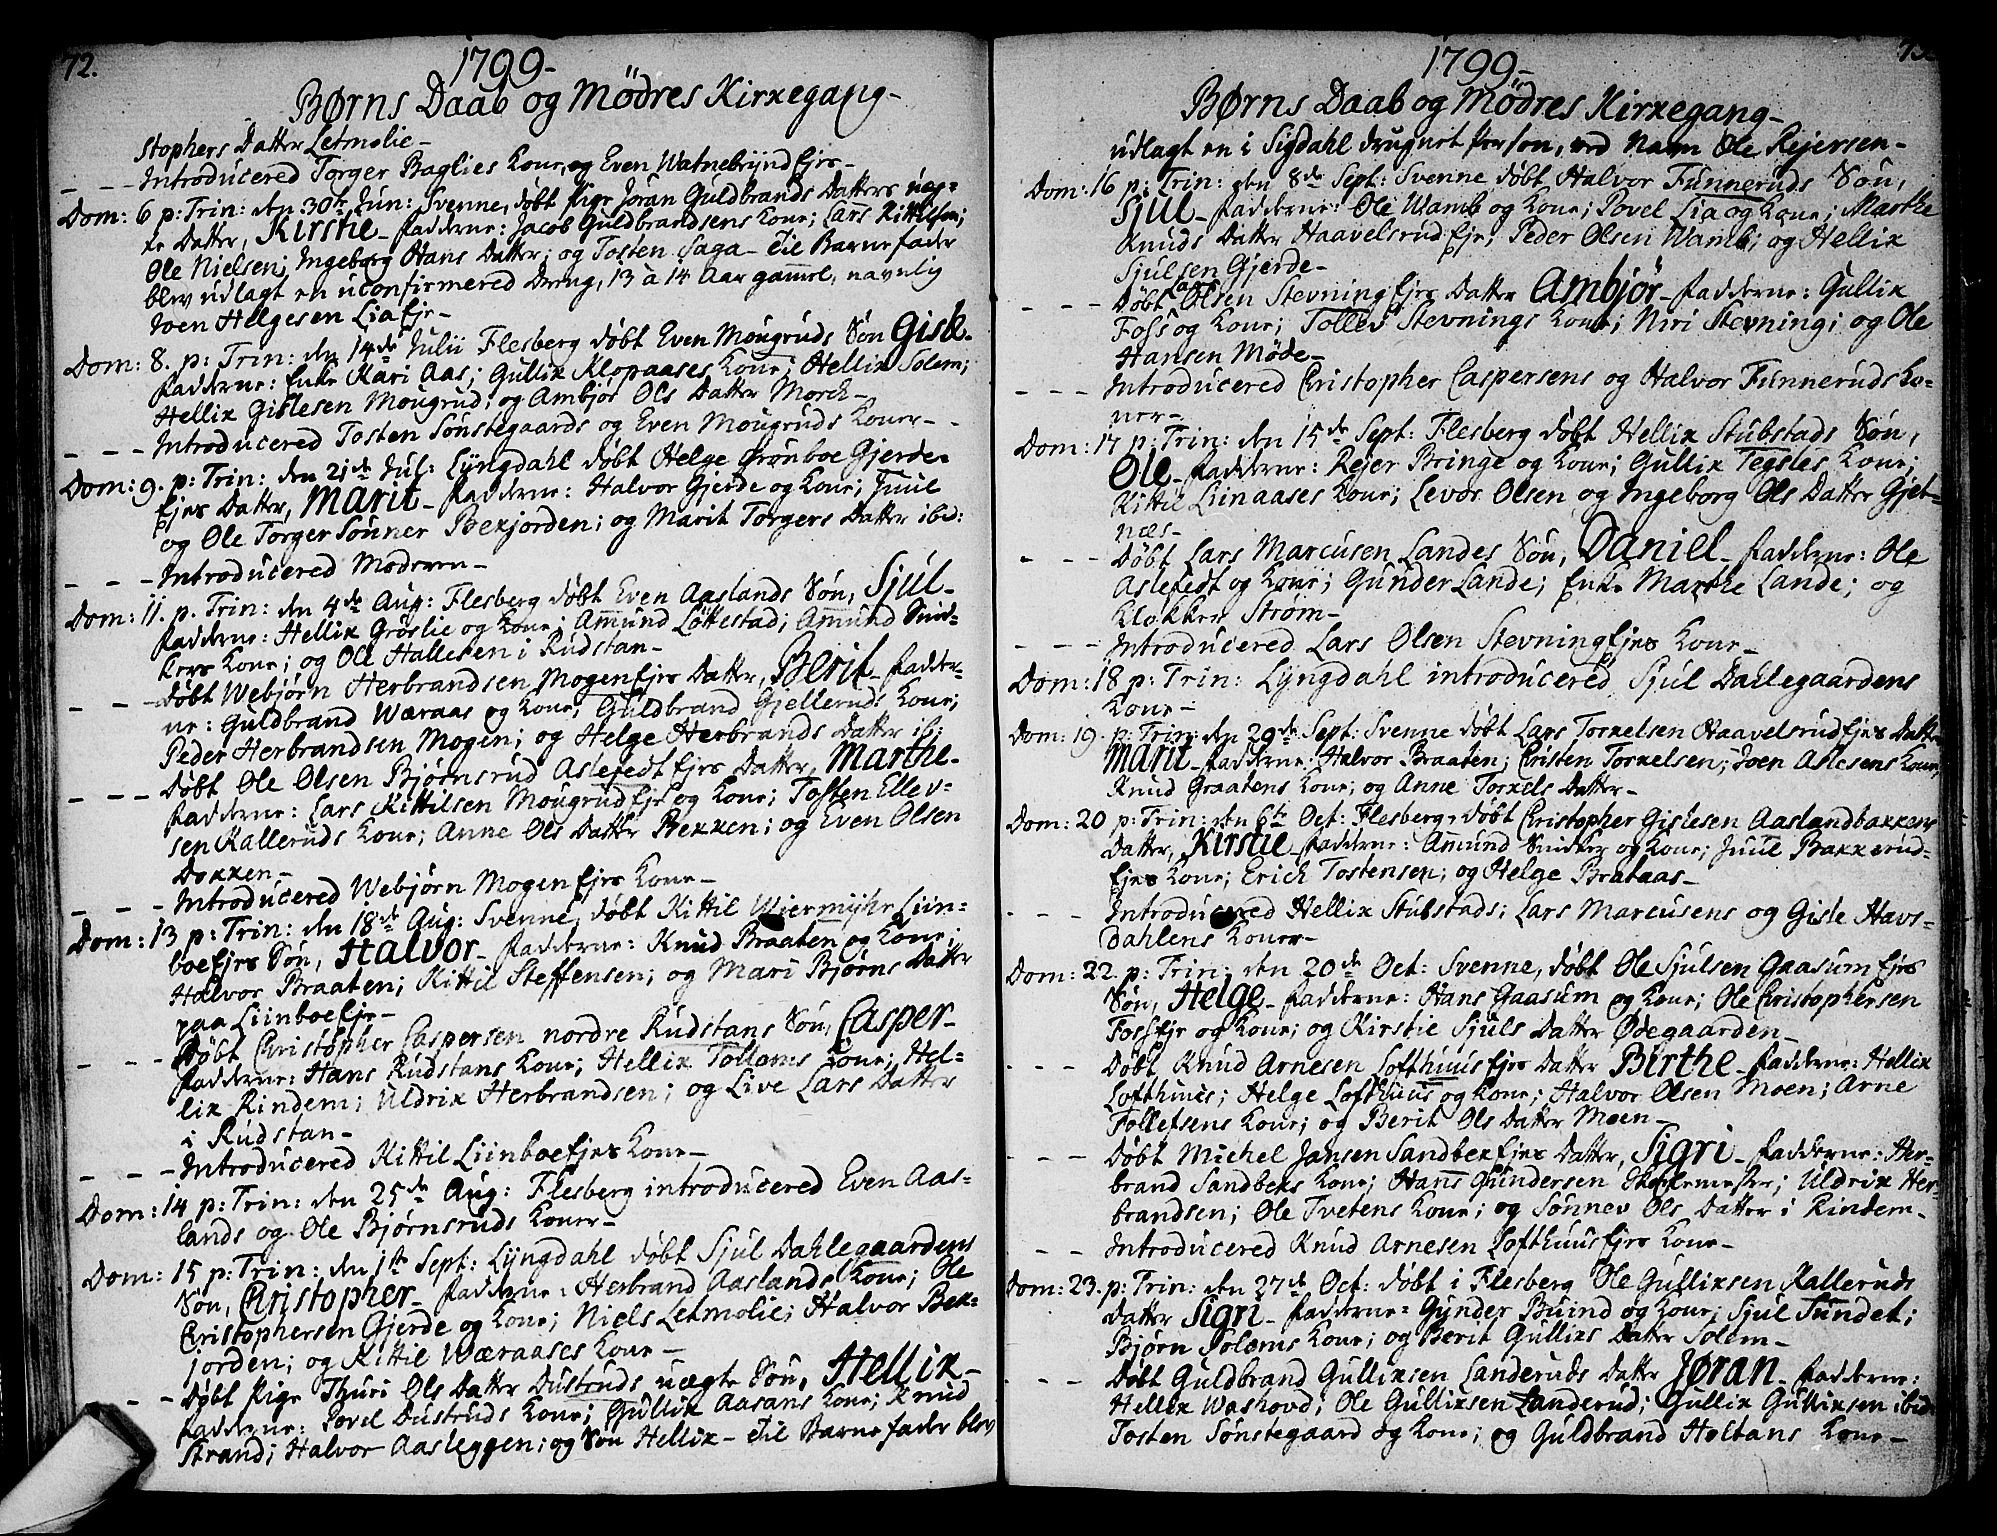 72.
1799-
Børns Daab og Mödres Kirkegang-
Stophers Datter Letmolie-
- - - Introduced Torger Baglies Kone, og Even Watnebrynd Ejes-
Dom: 6 p: Trin: den 30te Jun: Svenne, døbt Pige Jöran Guldbrands Datters uæg-
te Datter, Kirstie- Fadderne: Jacob Guldbrandsens Kone; Lars Kittilsen;
Ole Nielsen; Ingeborg Hans Datter; og Tosten Saga- Til Barnefader
blev udlagt en uconfirmered Dreng, 13 à 14 Aar gamel, navnlig
Joen Helgesen Lia Eje-
Dom: 8. p: Trin: den 14de Julii Flesberg døbt Even Mougruds Sön Gisle-
Fadderne: Enke Kari Aas; Gullik Klopaases Kone; Hellik Solem;
Hellik Gislesen Mougrud; og Ambjör Ols Datter Morck-
- - - Introduced Tosten Sönstegaards og Even Mougruds Koner-
Dom: 9. p: Trin: den 21de Jul: Lyngdahl døbt Helge Grönboe Gjerde-
Ejes Datter, Marit- Fadderne: Halvor Gjerde og Kone; Juul
og Ole Torger Sönner Bekjorden; og Marit Torgers Datter ibid:
- - - Introduced Moderen-
Dom: 11. p: Trin: den 4de Aug: Flesberg døbt Even Aaslands Sön, Sjul-
Fadderne: Hellik Gröslie og Kone; Amund Löttestad; Amund Snid-
kers Kone; og Ole Hallesen i Rudstan-
- - - Døbt Webjörn Herbrandsen Mogen Ejes Datter, Berit- Fadder-
ne: Guldbrand Wæraas og Kone; Guldbrand Gjelleruds Kone;
Peder Herbrandsen Mogen; og Helge Herbrands Datter ib:
- - - Døbt Ole Olsen Bjørnsrud Aslefedt Ejes Datter, Marthe-
Fadderne: Lars Kittilsen Mougrud Eje og Kone; Tosten Ellev-
sen Kalleruds Kone; Anne Ols Datter Bekken; og Even Olsen
Dokken-
- - - Introduced Webjørn Mogen Ejes Kone-
Dom: 13 p: Trin: den 18de Aug: Svenne, døbt Kittil Wiermyhr Liin-
boe Ejes Sön, Halvor- Fadderne: Knud Braaten og Kone;
Halvor Braaten; Kittil Steffensen; og Mari Bjørns Datter
paa Liinboe Eje-
- - - Døbt Christopher Caspersen nordre Rudstans Sön, Casper-
Fadderne: Hans Rudstans Kone; Hellik Tollems Kone; Hel-
lik Rindem; Uldrik Herbrandsen; og Live Lars Datter
i Rudstan-
- - - Introduced Kittil Liinboe Ejes Kone-
Dom: 14 p: Trin: den 25de Aug: Flesberg introduced Even Aas-
lands og Ole Bjørnsruds Koner-
Dom: 15 p: Trin: den 1ste Sept: Lyngdahl døbt Sjul Dahlegaardens
Sön, Christopher- Fadderne: Herbrand Aaslands Kone; Ole
Christophersen Gjerde og Kone; Niels Letmolie; Halvor Bek-
jorden; og Kittil Wæraases Kone-
- - - Døbt Pige Thuri Ols Datter Dustruds uægte Sön, Hellik-
Fadderne: Povel Dustruds Kone; Gullik Aasans Kone; Knud
Strand; Halvor Aasleggen; og Sön Hellik- Til Barnefader blev
1799-
Børns Daab og Mödres Kirkegang-
udlagt en i Sigdahl drugnet Person, ved Navn Ole Rejersen-
Dom: 16 p: Trin: den 8de Sept: Svenne døbt Halvor Funneruds Sön,
Sjul- Fadderne: Ole Wamb og Kone; Povel Lia og Kone; Marthe
Knuds Datter Haavelsrud Eje; Peder Olsen Wamb; og Hellik
Sjulsen Gjerde-
- - - Døbt Lars Olsen Stevning Ejes Datter Ambjör- Fadderne: Gullik
Foss og Kone; Tollev Stevnings Kone; Niri Stevning; og Ole
Hansen Möde-
- - - Introduced Christopher Caspersens og Halvor Funneruds Ko-
ner-
Dom: 17 p: Trin: den 15de Sept: Flesberg døbt Hellik Stubstads Sön,
Ole- Fadderne: Rejer Bringe og Kone; Gullik Tegsles Kone;
Kittil Liinaases Kone; Levor Olsen og Ingeborg Ols Datter Gjet-
næs-
- - - Døbt Lars Marcusen Landes Sön, Daniel- Fadderne: Ole
Aslefedt og Kone; Gunder Lande; Enke Marthe Lande; og
Klokker Ström-
- - - Introduced Lars Olsen Stevning Ejes Kone-
Dom: 18 p: Trin: Lyngdahl introduced Sjul Dahlegaardens
Kone-
Dom: 19. p: Trin: den 29de Sept: Svenne døbt Lars Torkelsen Haavelsrud Ejes Datter
Marit- Fadderne: Halvor Braaten; Christen Torkelsen; Joen Aslesens Kone;
Knud Graatens Kone; og Anne Torkels Datter-
Dom: 20 p: Trin: den 6te Oct: Flesberg, døbt Christopher Gislesen Aaslandbakkens
Datter, Kirstie- Fadderne: Amund Snidker og Kone; Juul Bakkerud-
Ejes Kone; Erich Tostensen; og Helge Brataas-
- - - Introduced Hellik Stubstads; Lars Marcusens og Gisle Havs-
dahlens Koner-
Dom: 22. p: Trin: den 20de Oct: Svenne, døbt Ole Sjulsen Gaasum Ejes
Sön, Helge- Fadderne: Hans Gaasum og Kone; Ole Christophersen
Foss Eje og Kone; og Kirstie Sjuls Datter Ødegaarden-
- - - Døbt Knud Arnesen Lofthuus Ejes Datter Birthe- Fadderne: Hellik
Lofthuus; Helge Lofthuus og Kone; Halvor Olsen Moen; Arne
Tollefsens Kone; og Berit Ols Datter Moen-
- - - Døbt Michel Jansen Sandbek Ejes Datter, Sigri- Fadderne: Her-
brand Sandbeks Kone; Hans Gundersen Skolemester; Uldrik Her-
brandsen; Ole Tvetens Kone; og Sönnev Ols Datter i Rindem-
- - Introduced Knud Arnesen Lofthuus Ejes Kone-
Dom: 23. p: Trin: den 27de Oct: døbt i Flesberg Ole Gulliksen Kalleruds
Datter Sigri- Fadderne: Gunder Buind og Kone; Sjul Sundet;
Bjørn Solems Kone; og Berit Gulliks Datter Solem-
- - - Døbt Guldbrand Gulliksen Landeruds Datter Jøran- Fadderne:
Hellik Washovd; Ole Gulliksen Landerud; Gullik Gulliksen ibid:
Tosten Sönstegaard og Kone; og Guldbrand Holtans Kone-